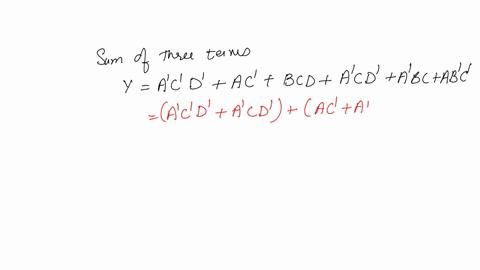 Sum of three terms
Y = A'C'D' + AC' + BCD + A'CD' + A'BC + AB'C'
= (A'C'D' + A'CD') + (AC' + A'